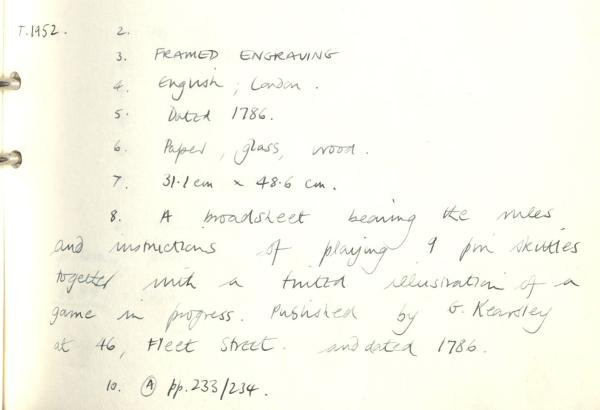 T.1952. 2.
3. FRAMED ENGRAVING
4. English ; London .
5. Dated 1786.
6. Paper , glass, wood.
7. 31.1 cm × 48.6 cm.
8. A broadsheet bearing the rules
and instructions of playing 9 pin skittles
together with a tinted illustration of a
game in progress. Published by G. Kearsley
at 46, Fleet Street. and dated 1786.
10. Ⓐ pp.233/234.